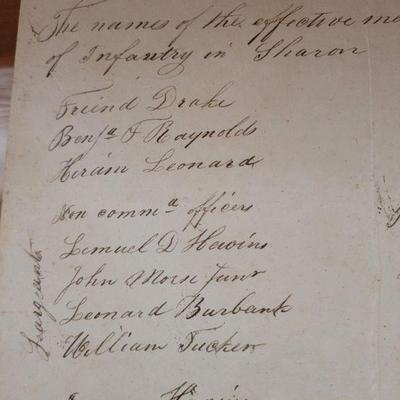 The names of the effective
of Infantry in Sharon
Friend Drake
Benjª F Raynolds
Hiram Leonard
Non commª officers
Lemuel D Hewins
John Morse Junr
Leonard Burbank
William Tucker
Sargeants